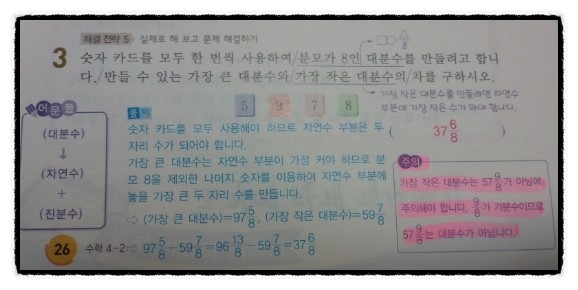 해결 전략 5 실제로 해 보고 문제 해결하기
□□/8
3 숫자 카드를 모두 한 번씩 사용하여 분모가 8인 대분수를 만들려고 합니
다. 만들 수 있는 가장 큰 대분수와 가장 작은 대분수의 차를 구하시오.
가장 작은 대분수를 만들려면 자연수
부분에 가장 작은 수가 와야 합니다.
5 9 7 8
( 37 6/8 )
어문풀
(대분수)
↓
(자연수)
+
(진분수)
풀이
숫자 카드를 모두 사용해야 하므로 자연수 부분은 두
자리 수가 되어야 합니다.
가장 큰 대분수는 자연수 부분이 가장 커야 하므로 분
모 8을 제외한 나머지 숫자를 이용하여 자연수 부분에
놓을 가장 큰 두 자리 수를 만듭니다.
⇨ (가장 큰 대분수)=97 5/8, (가장 작은 대분수)=59 7/8
⇨ 97 5/8 - 59 7/8 = 96 13/8 - 59 7/8 = 37 6/8
주의
가장 작은 대분수는 57 9/8가 아님에
주의해야 합니다. 9/8가 가분수이므로
57 9/8는 대분수가 아닙니다.
26 수학 4-2